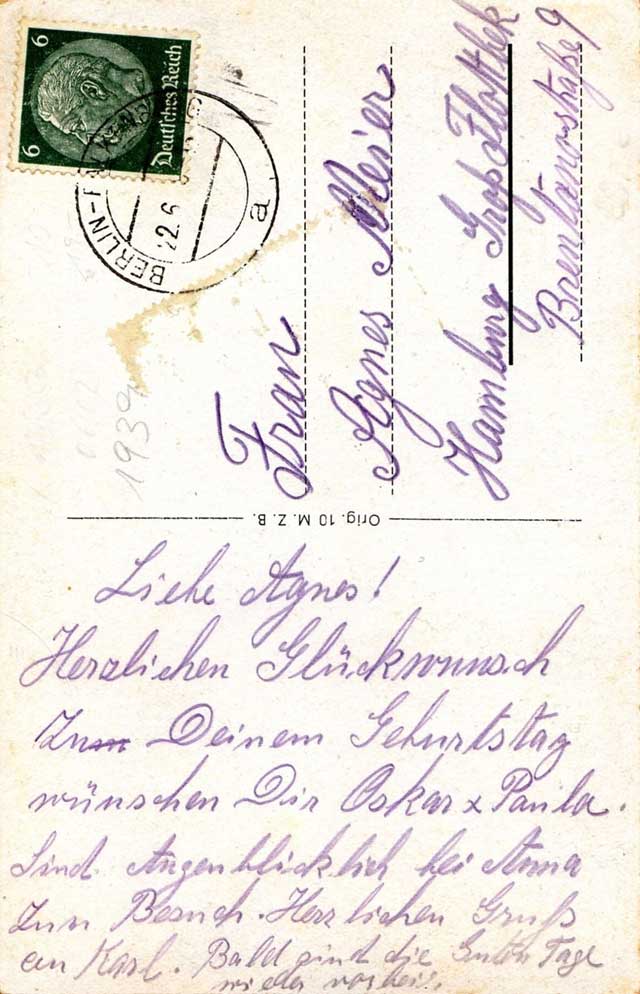 6 6
Deutsches Reich
BERLIN-
22.6
a
1939
Frau
Agnes Meier
Hamburg Groß Flottbek
Brentanostraße 9
Orig. 10 M. Z. B.
Liebe Agnes!
Herzlichen Glückwunsch
Zum Deinem Geburtstag
wünschen Dir Oskar x Paula.
Sind Augenblicklich bei Anna
Zum Besuch. Herzlichen Gruß
an Karl. Bald sind die Guten Tage
wieder vorbei.